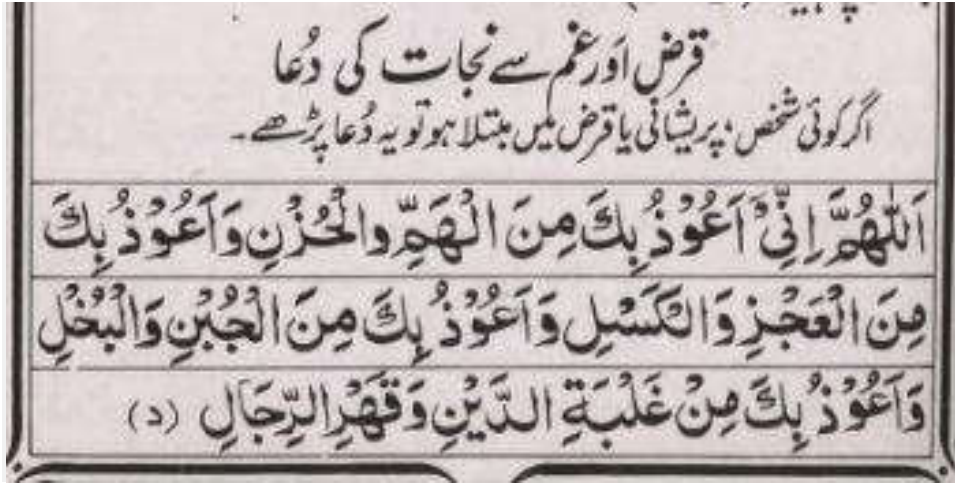 قرض اَور غم سے نجات کی دُعا
اگر کوئی شخص، پریشانی یا قرض میں مبتلا ہو تو یہ دُعا پڑھے۔
اَللّٰهُمَّ اِنِّیْۤ اَعُوْذُ بِكَ مِنَ الْهَمِّ والْحُزْنِ وَاَعُوْذُ بِكَ
مِنَ الْعَجْزِ وَالْكَسَلِ وَاَعُوْذُ بِكَ مِنَ الْجُبْنِ وَالْبُخْلِ
وَاَعُوْذُ بِكَ مِنْ غَلَبَةِ الدَّيْنِ وَقَهْرِ الرِّجَالِ (د)